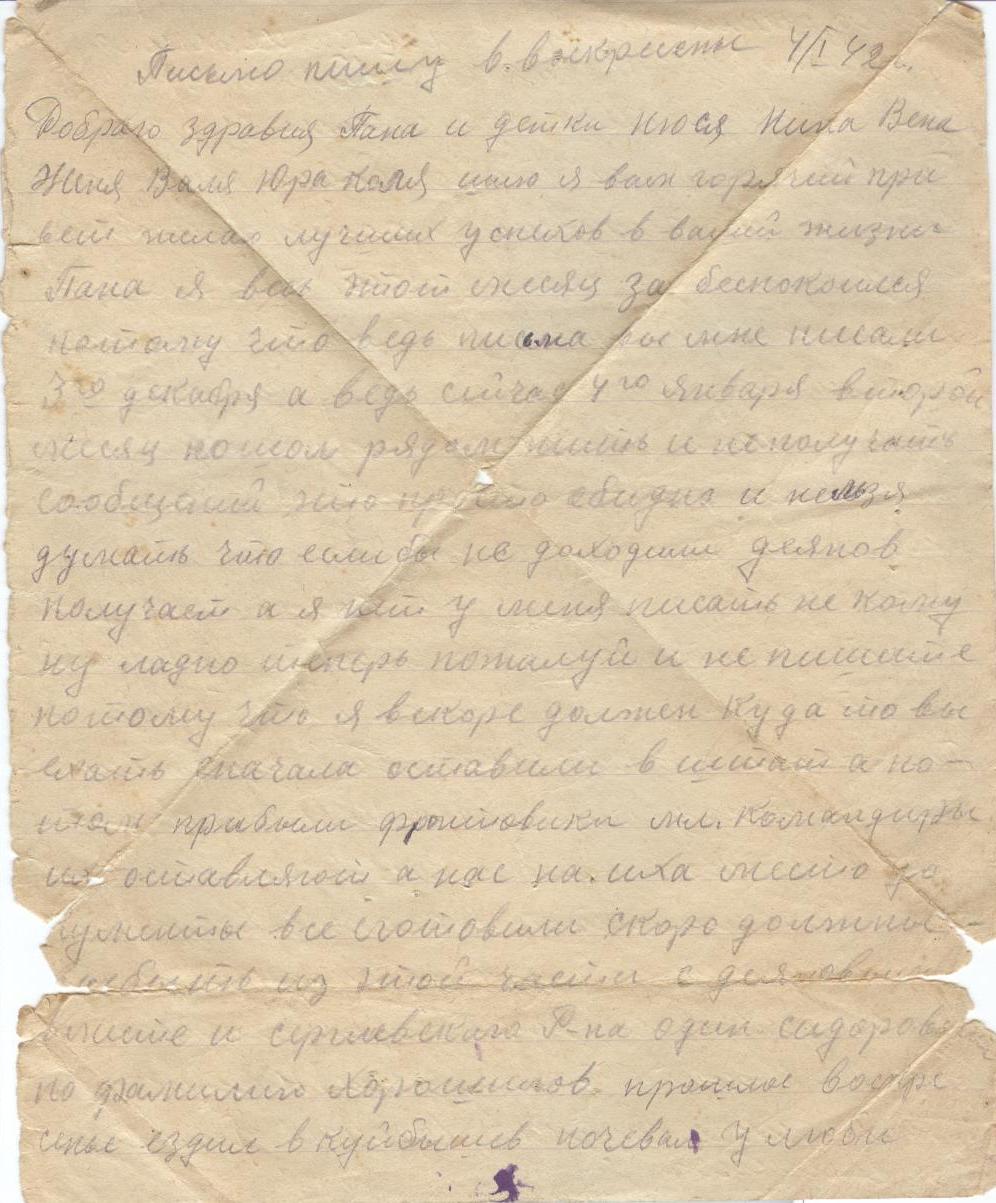 Письмо пишу в. васкрисены 4/I 42 г.
Доброго здравия Папа и детки нюся нина Вена
Женя Валя Юра коля шлю я вам горячий при
вет желаю лучших успехов в вашей жизни
Папа я весь этот месяц за беспокоился
потому что ведь письма вы мне писали
3го декабря а ведь сичас 4го января второй
месяц пошол рядом жить и не получать
сообщений это просто обидно и нельзя
думать что еслибы не доходили деянов
получает а я нет у меня писать не кому
ну ладно теперь пожалуй и не пишите
потому что я вскоре должен куда то вы
ехать сначала оставили в штат а по-
том прибыли фронтовики мл. командиры
их оставляют а нас на.иха место до
кументы все сготовили скоро должны -
выбыть из этой части с деяновым
вместе и сергиевского Р-на один сидоровский
по фамилии Хорошилов прошлое воскре
сенье ездил в куйбышев ночевал у любы